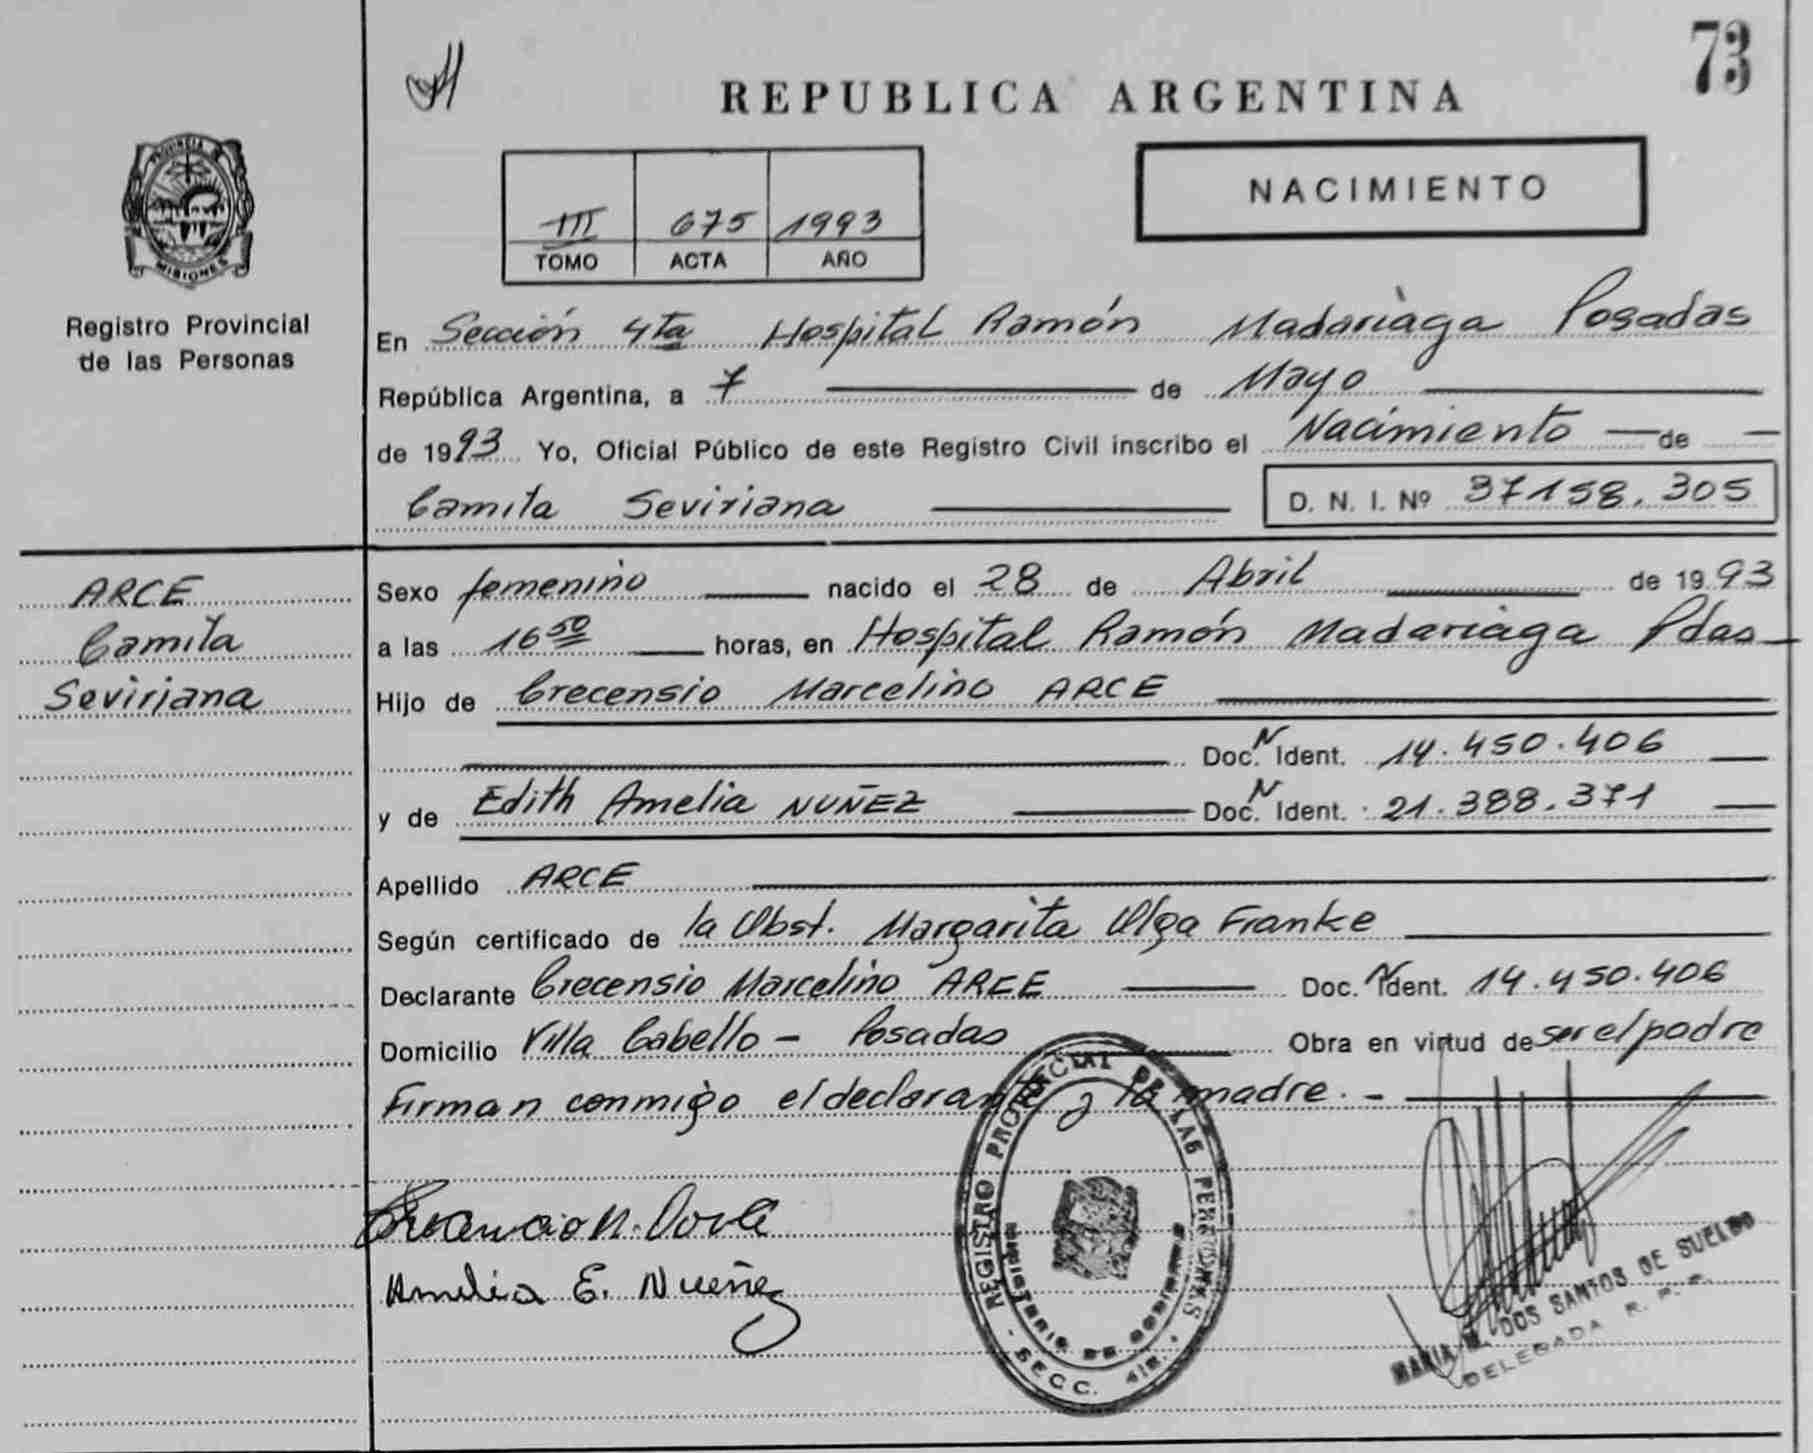 73
REPUBLICA ARGENTINA
NACIMIENTO
III 675 1993
TOMO ACTA AÑO
PROVINCIA DE MISIONES
Registro Provincial
de las Personas
En Sección 4ta Hospital Ramón Madariàga Posadas
República Argentina, a 7 de Mayo
de 1993 Yo, Oficial Público de este Registro Civil inscribo el Nacimiento de
Camila Seviriana D. N. I. Nº 37158.305
ARCE
Camila
Seviriana
Sexo femenino nacido el 28 de Abril de 1993
a las 16 50 horas, en Hospital Ramón Madariàga Pdas
Hijo de Crecensio Marcelino ARCE
Doc. N Ident. 14.450.406
y de Edith Amelia NUÑEZ Doc. N Ident. 21.388.371
Apellido ARCE
Según certificado de la Obst. Margarita Olga Franke
Declarante Crecensio Marcelino ARCE Doc. N Ident. 14.450.406
Domicilio Villa Cabello - Posadas Obra en virtud de ser el padre
Firman conmigo el declarante y la madre. -
Amelia E. Nuñez
REGISTRO PROVINCIAL DE LAS PERSONAS
MINISTERIO DE GOBIERNO
SECC. 4ta.
MARIA M. DOS SANTOS DE SUELDO
DELEGADA R. P. P.